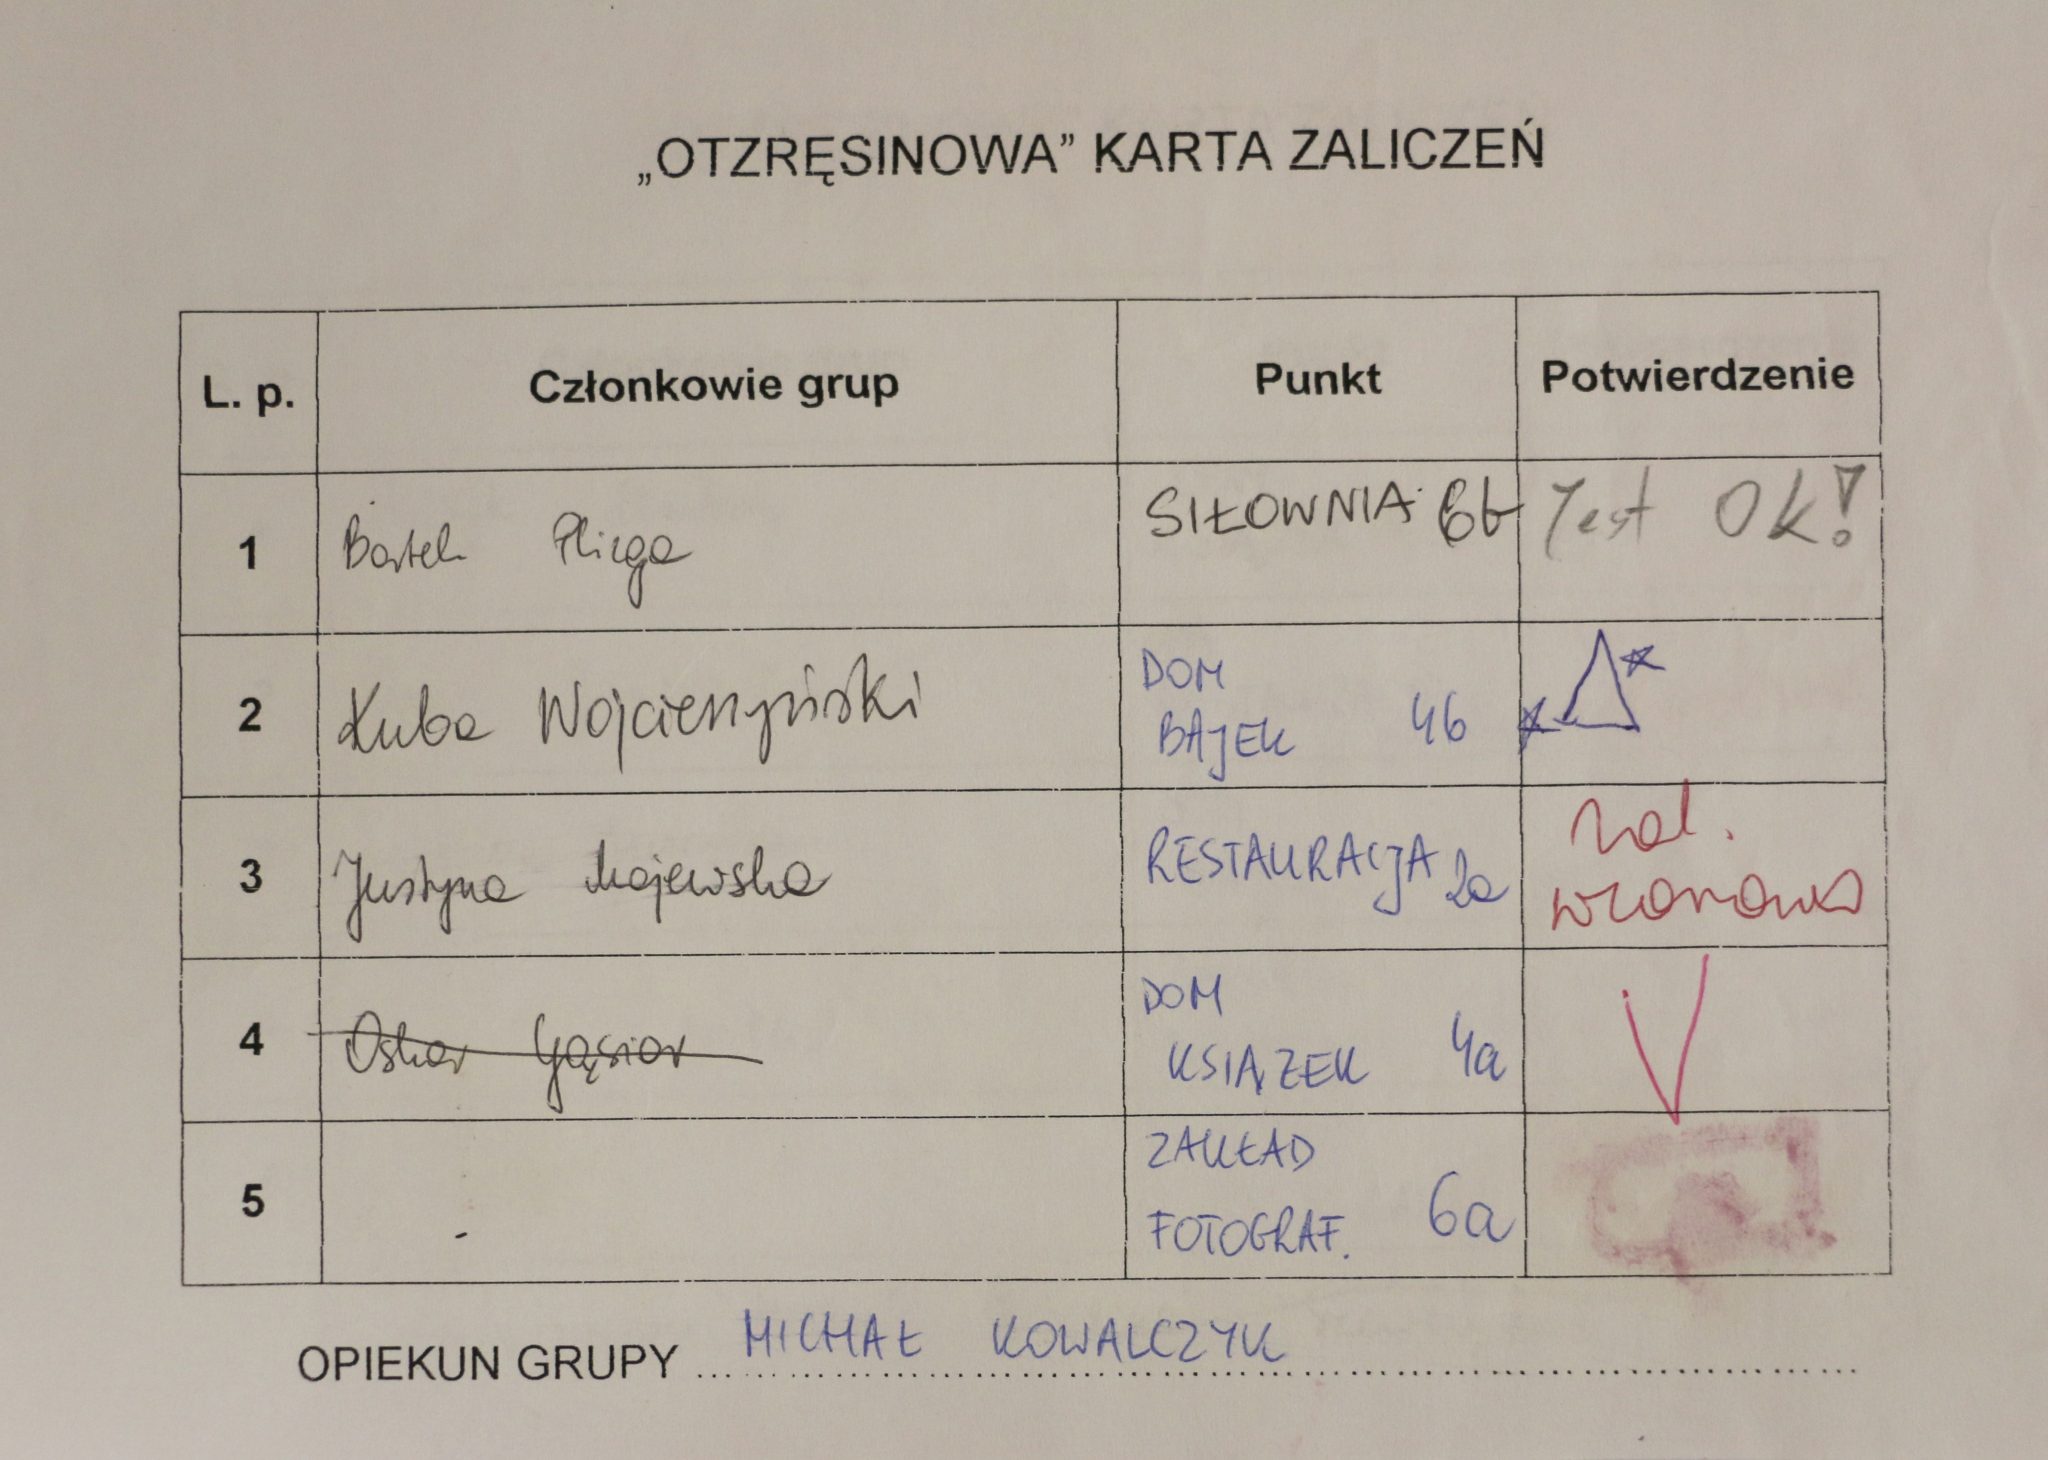 „OTZRĘSINOWA” KARTA ZALICZEŃ
L. p. Członkowie grup Punkt Potwierdzenie
1 Bartek Plicga SIŁOWNIA 6b Jest OK!
2 Kuba Wojcieszyński DOM
BAJEK 4b
3 Justyna Majewska RESTAURACJA 2a zal.
wzorowo
4 Oskar Gąsior DOM
KSIĄŻEK 4a
5 ZAKŁAD
FOTOGRAF. 6a
OPIEKUN GRUPY MICHAŁ KOWALCZYK